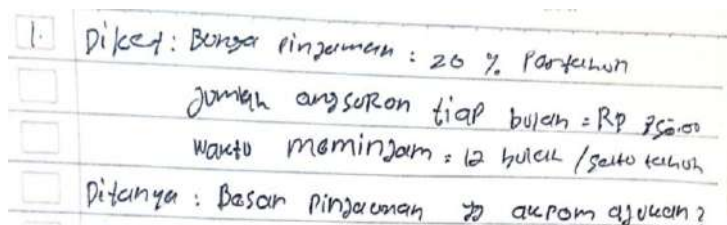 1. Diket : Bunga pinjaman : 20 % Pertahun
Jumlah angsuran tiap bulan = Rp
Waktu meminjam = 12 bulan / satu tahun
Ditanya : Besar Pinjaman ajukan ?